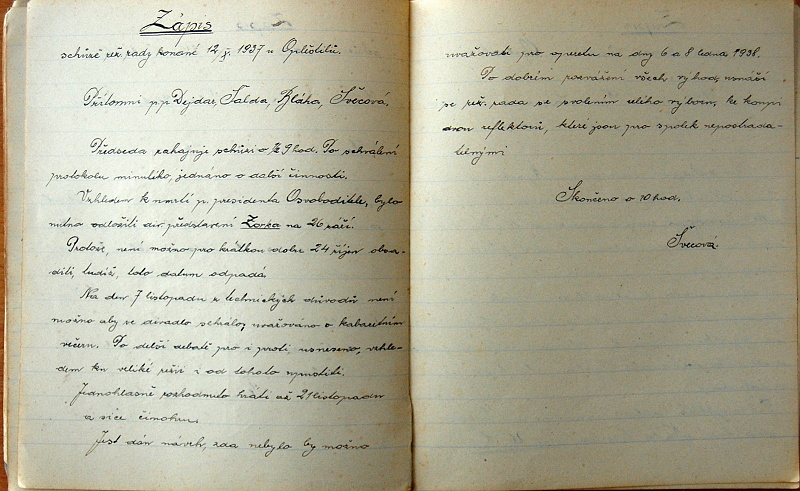 Zápis
schůzě rež. rady konané 12. X. 1937 u Opletštilů.
Přítomni pp. Dejdar, Šalda, Bláha, Švecová.
Předseda zahajuje schůzi o ½ 9 hod. Po schválení
protokolu minulého, jednáno o další činnosti.
Vzhledem k úmrtí p. presidenta Osvoboditele, bylo
nutno odložiti div. představení Zorka na 26 září.
Protože, není možno pro krátkou dobu 24 říjen obsa-
diti, tudiž, toto datum odpadá.
Na den 7 listopadu z technických důvodů není
možno aby se divadlo sehrálo, uvažováno o kabaretním
večeru. Po delší debatě pro i proti, usneseno, vzhle-
dem ku veliké režii i od tohoto upustiti.
Jednohlasně rozhodnuto hráti až 21 listopadu
a sice činohru.
Jest dán návrh, zda nebylo by možno
uvažovati pro operetu na dny 6 a 8 ledna 1938.
Po dobrém posvážení všech výhod, usnáší
se rež. rada se svolením celého výboru, ke koupi
dvou reflektorů, které jsou pro spolek nepostrada-
telnými
Skončeno o 10 hod.
Švecová.